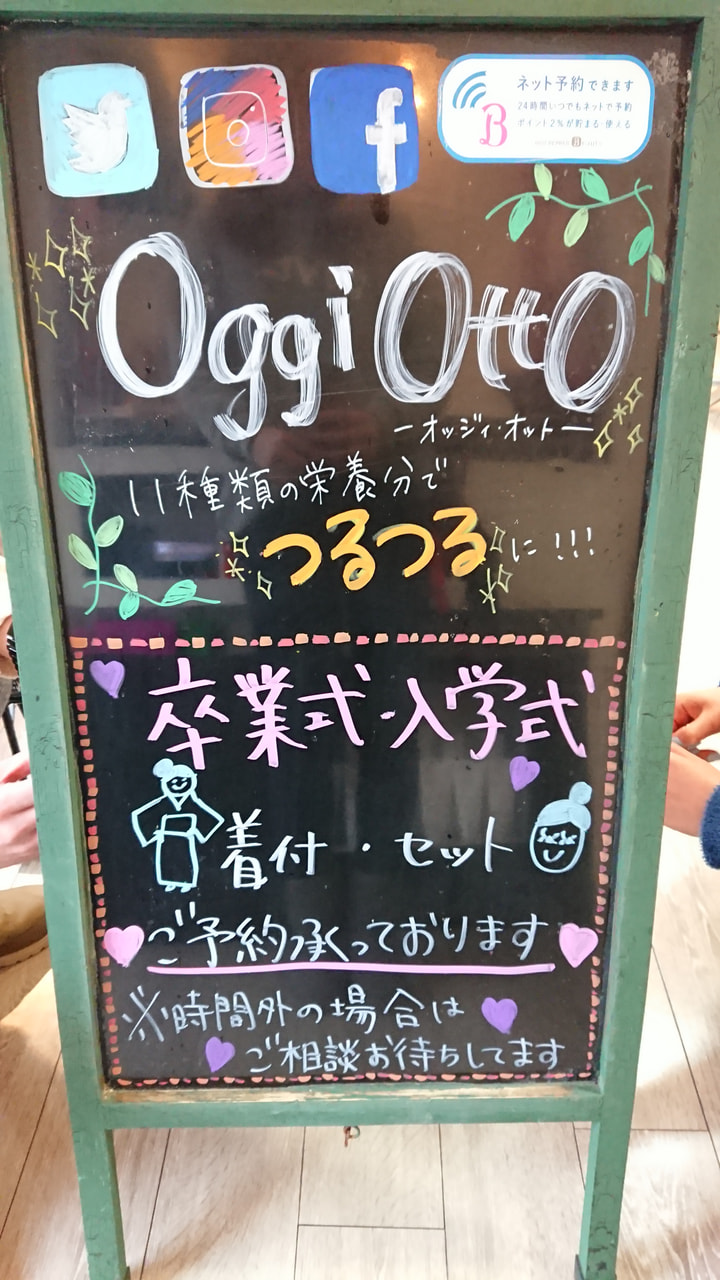 ネット予約できます
24時間いつでもネットで予約
ポイント2%が貯まる、使える
Oggi Otto
ーオッジィ・オットー
11種類の栄養分で
つるつるに!!!
卒業式・入学式
着付・セット
ご予約承っております
※時間外の場合は
ご相談お待ちしてます